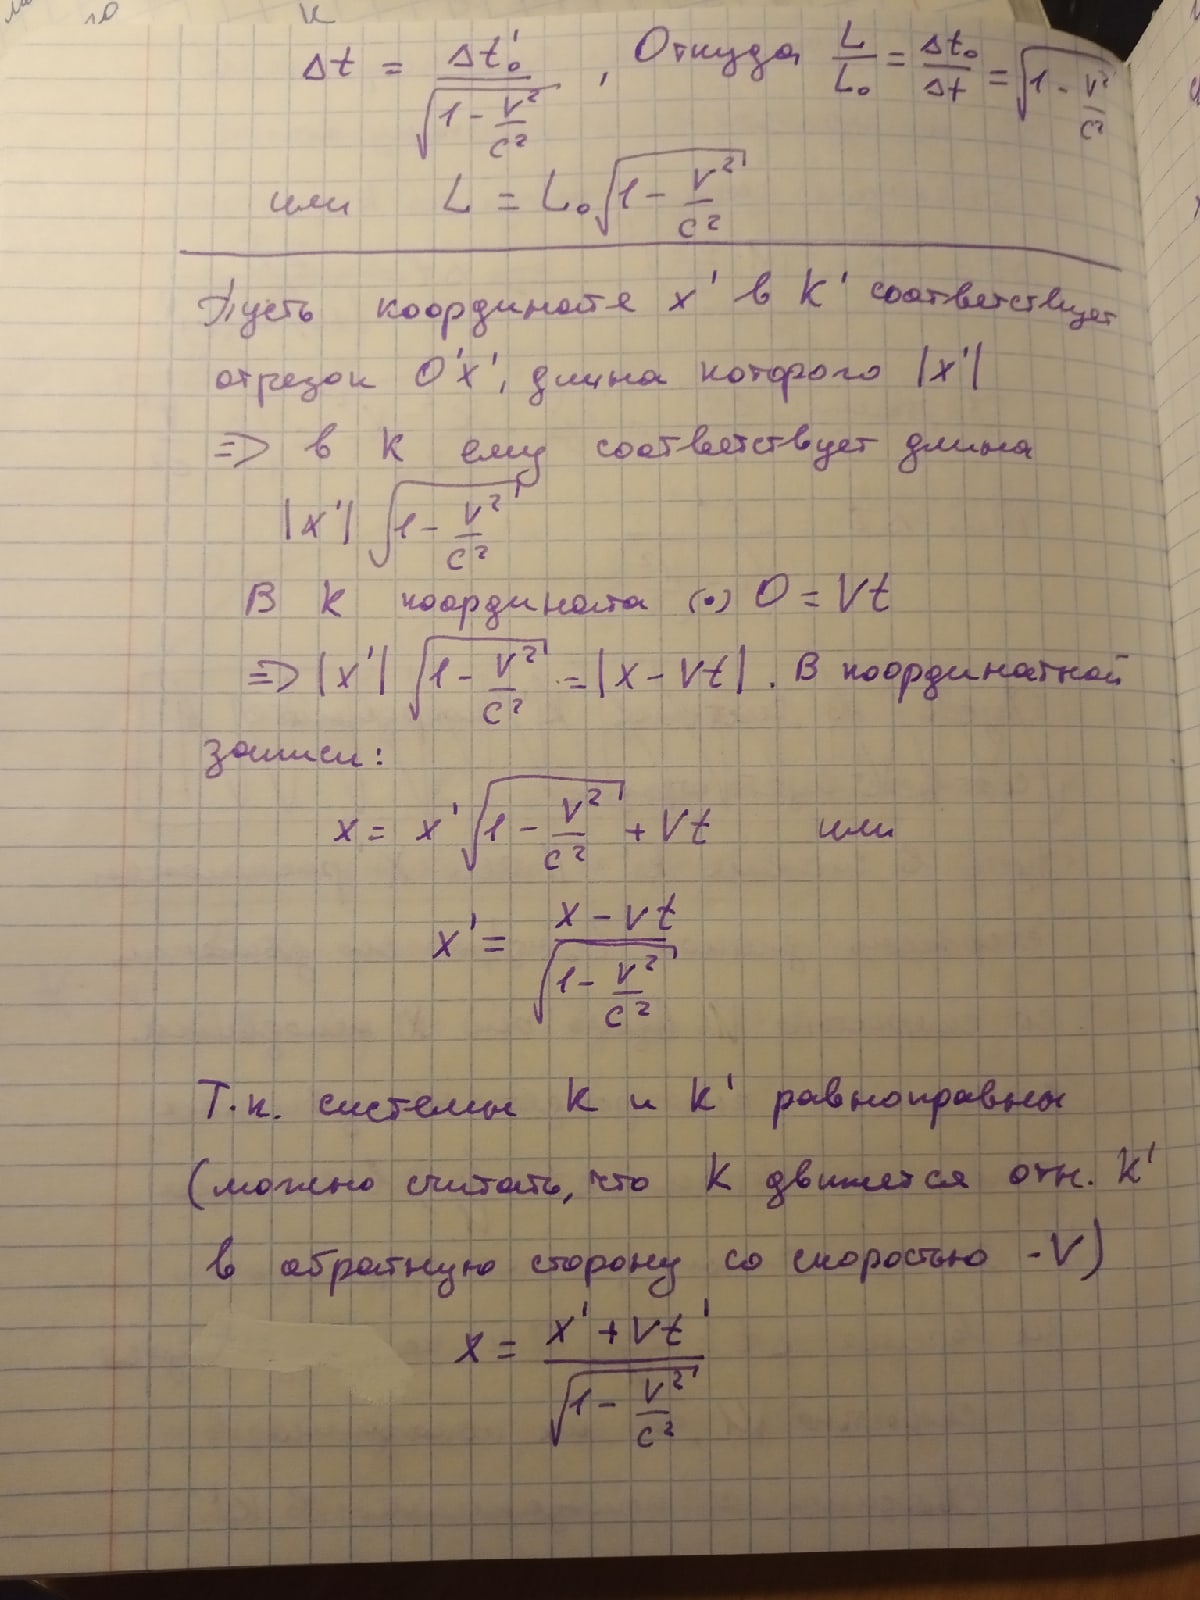 Δt = Δt₀' / √(1 - V²/c²) , Откуда L/L₀ = Δt₀/Δt = √(1 - V²/c²)
или L = L₀ √(1 - V²/c²)
Пусть координате x' в K' соответствует
отрезок O'x', длина которого |x'|
=> в K ему соответствует длина
|x'| √(1 - V²/c²)
В K координата (·) O = Vt
=> |x'| √(1 - V²/c²) = |x - Vt|. В координатной
записи:
x = x' √(1 - V²/c²) + Vt или
x' = (x - Vt) / √(1 - V²/c²)
Т.к. системы K и K' равноправны
(можно считать, что K движется отн. K'
в обратную сторону со скоростью -V)
x = (x' + Vt') / √(1 - V²/c²)